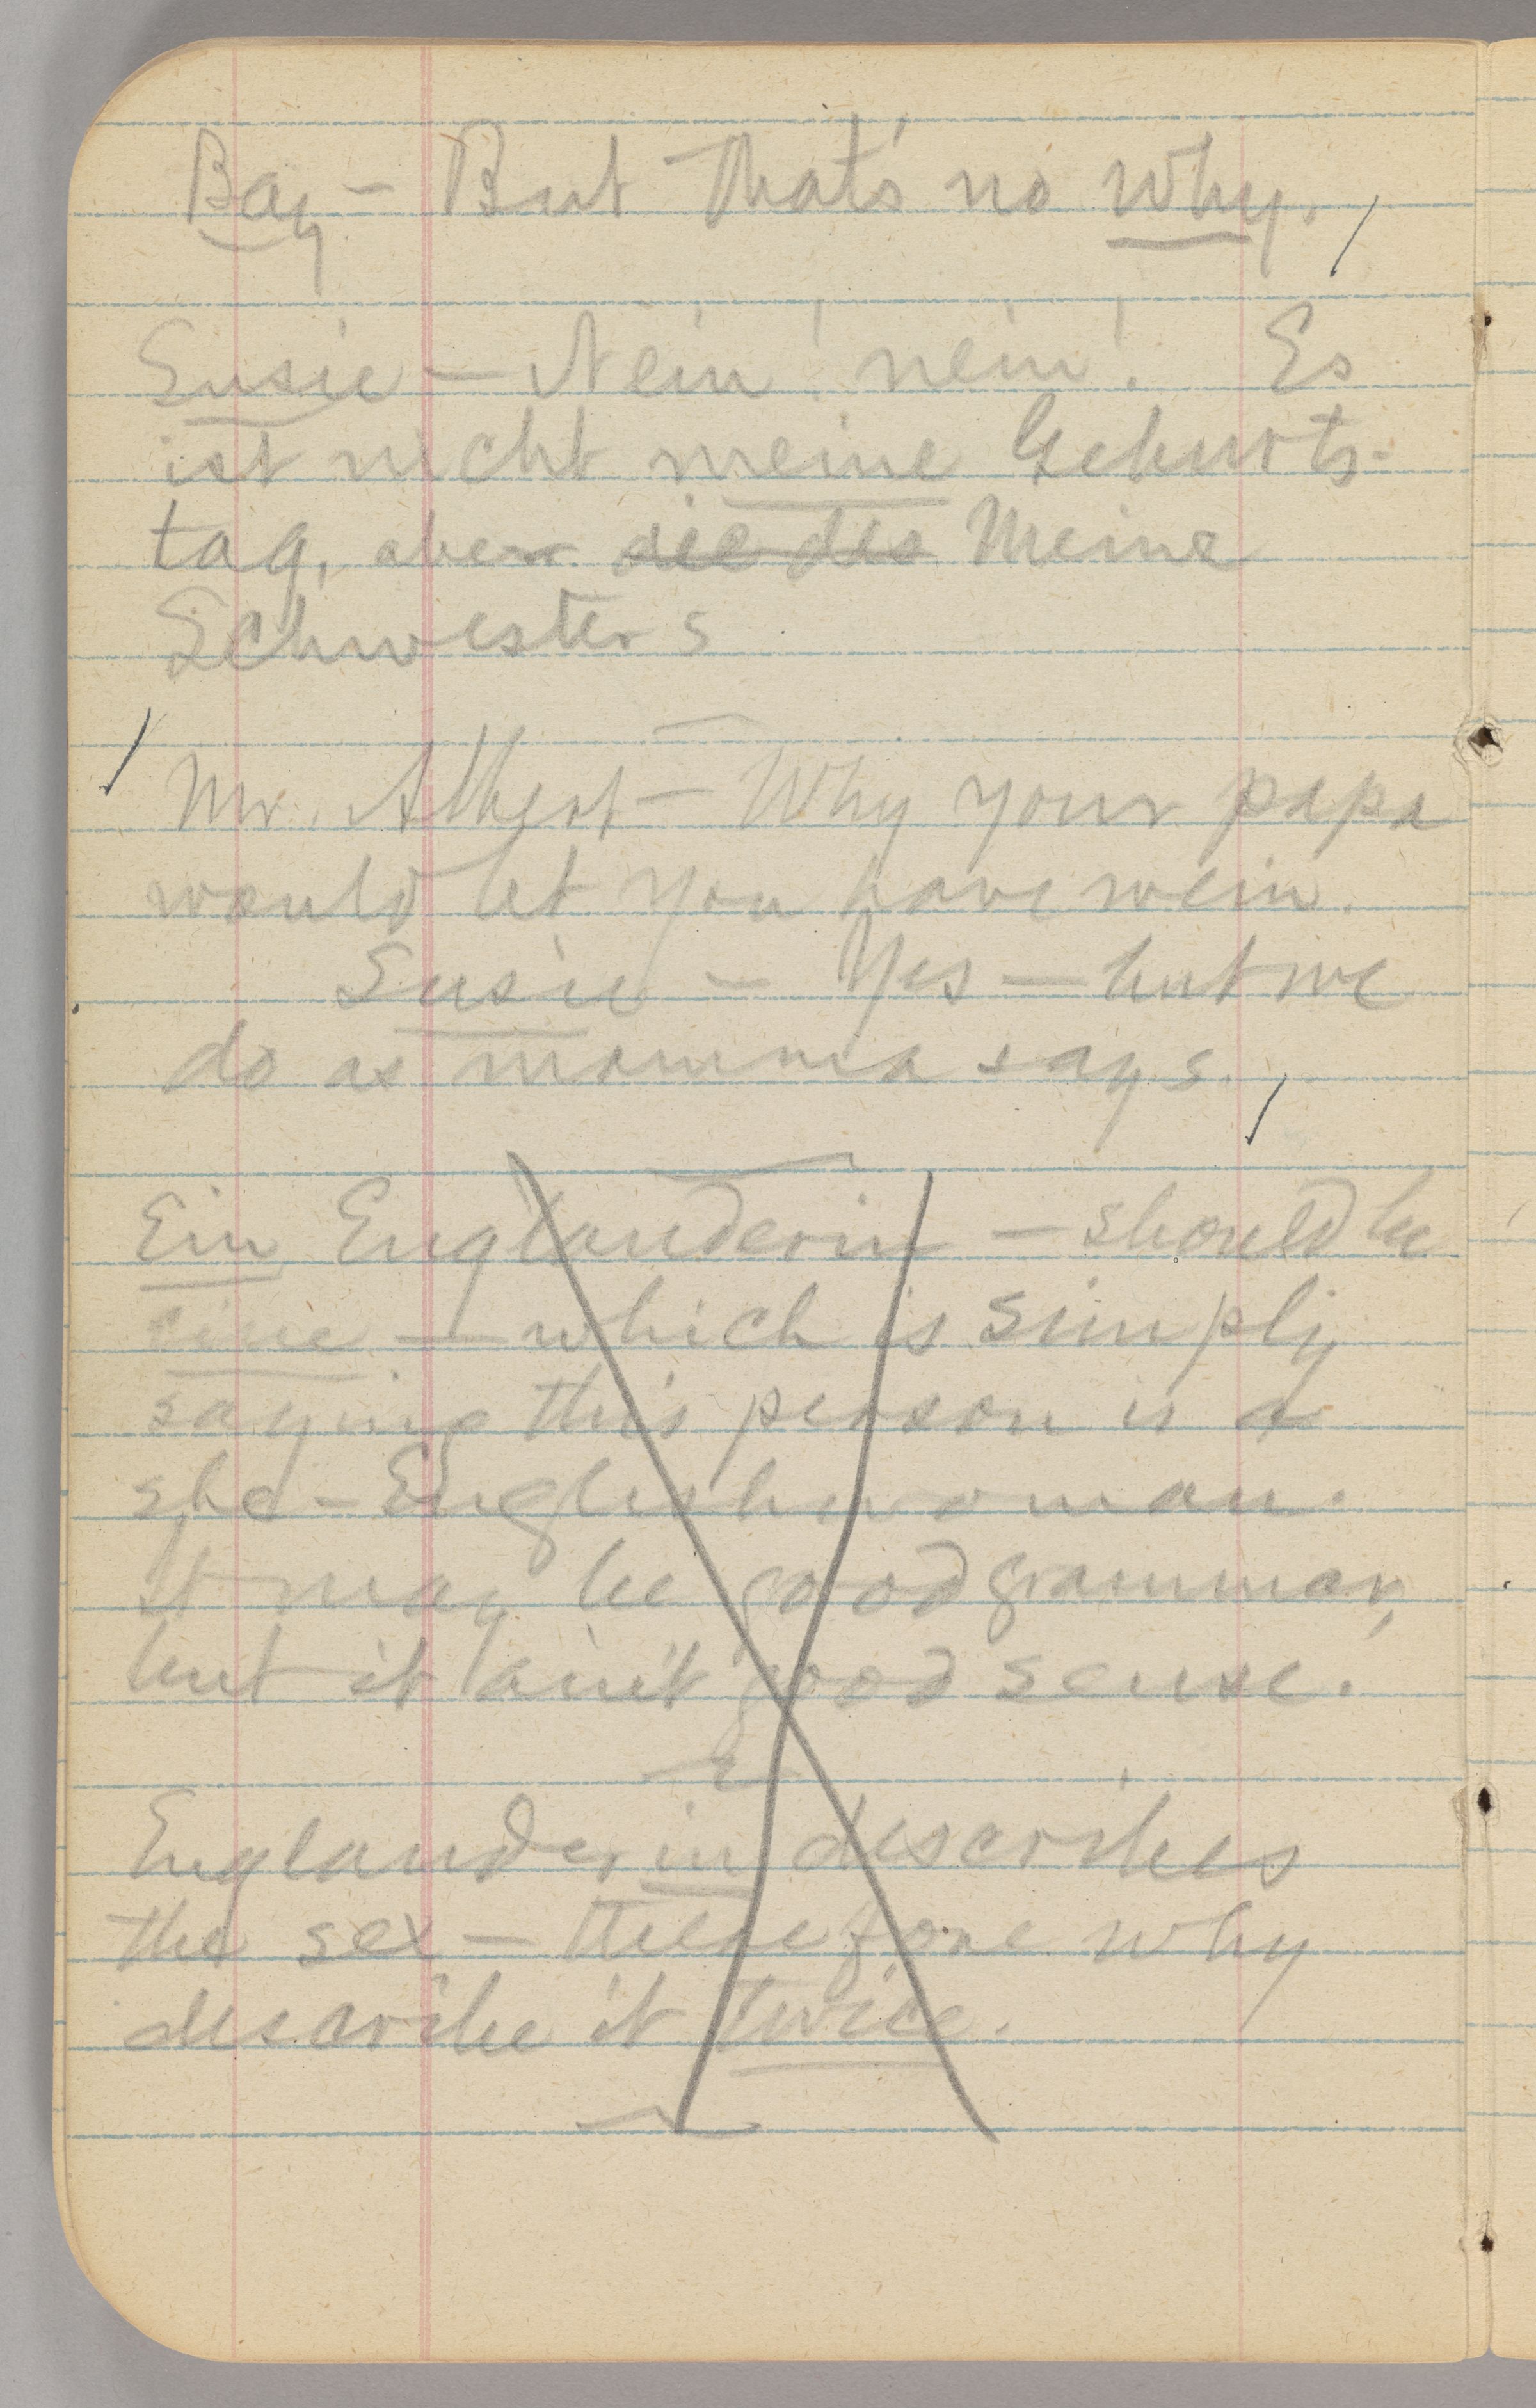 Bay – But that's no why.
Susie – Nein! nein! Es
ist nicht meine Geburts-
tag, aber sie des Meine
Schwesters
Mr. Albert – Why your papa
would let you have wein.
Susie – Yes – but we
do as mamma says.
Ein Englanderin – should be
eine – which is simply
saying this person is a
she-Englishwoman.
it may be good grammar,
but it ain't good sense.
Englanderin describes
the sex – therefore why
describe it twice.